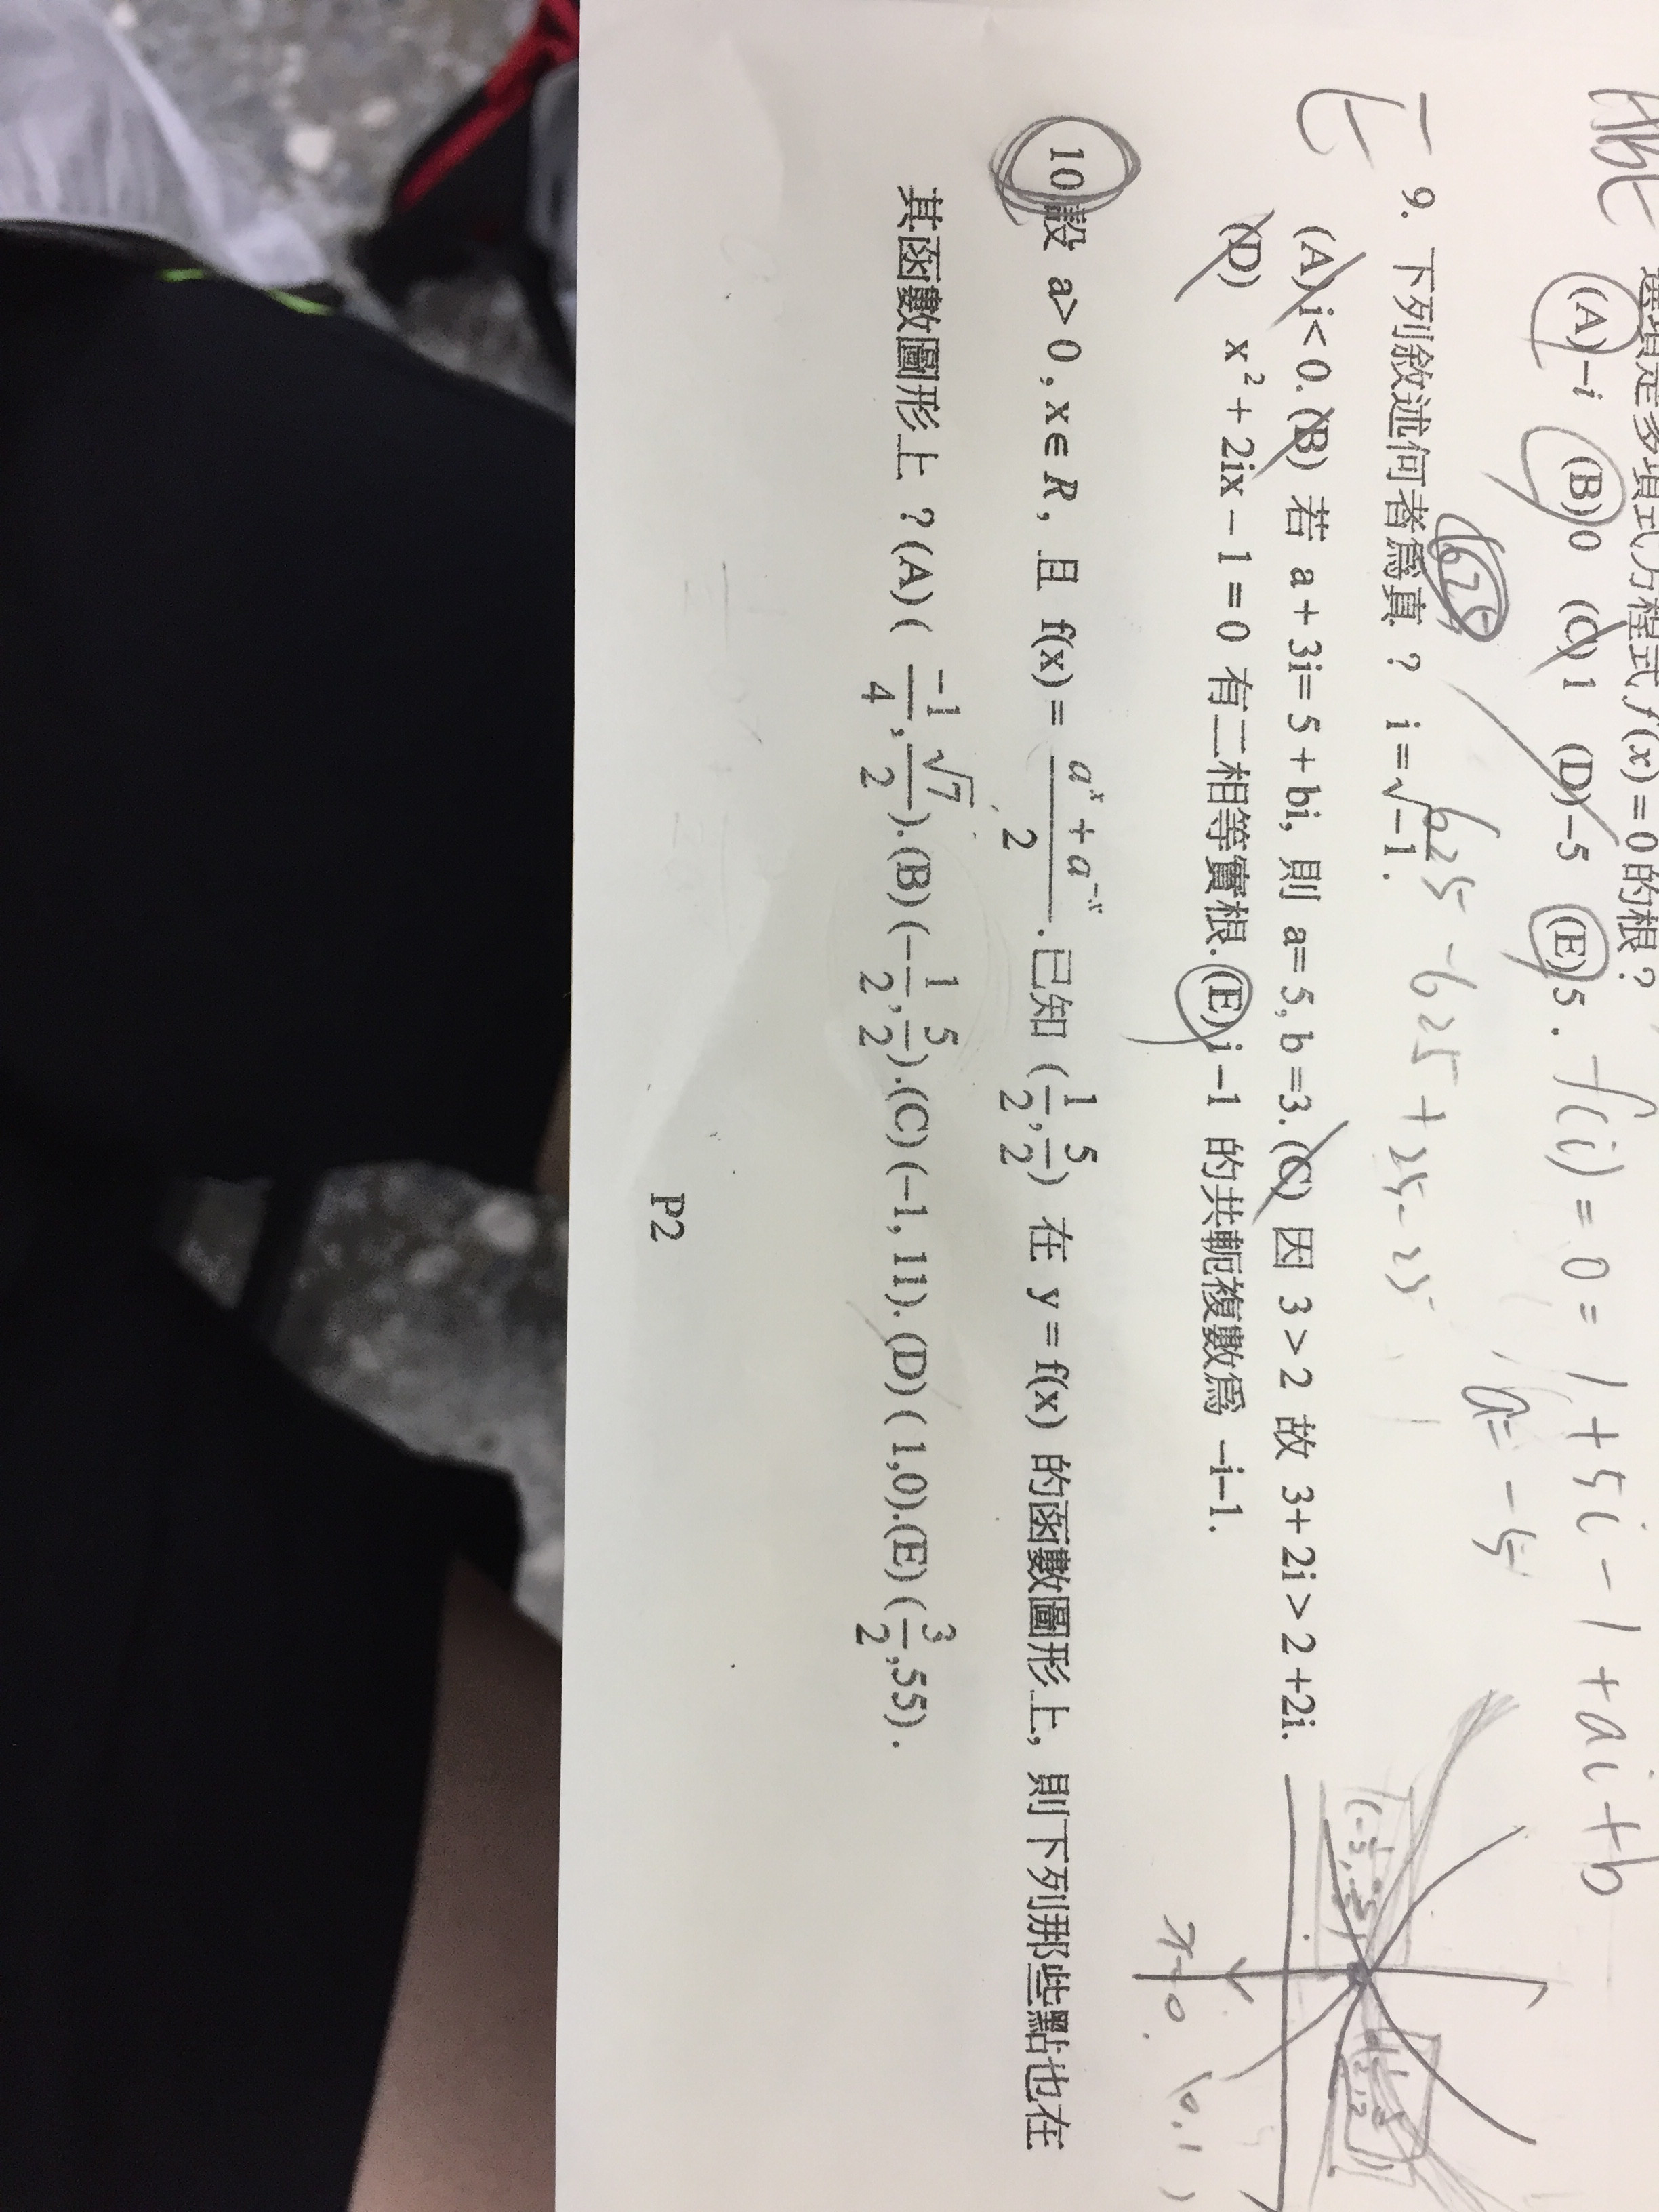 選項是多項式方程式 f(x) = 0 的根?
(A) -i (B) 0 (C) 1 (D) -5 (E) 5. f(i) = 0 = 1 + 5i - 1 + ai + b
a = -5
625 - 625 + 25 - 25
625
E 9. 下列敘述何者為真 ? i = √-1.
(A) i< 0. (B) 若 a + 3i= 5 + bi, 則 a= 5, b =3. (C) 因 3 > 2 故 3+ 2i > 2 +2i.
(D) x² + 2ix - 1 = 0 有二相等實根. (E) i -1 的共軛複數為 -i-1.
10 設 a> 0 , x ∈ R , 且 f(x) = (a^x + a^-x)/2 . 已知 (1/2, 5/2) 在 y = f(x) 的函數圖形上, 則下列那些點也在
其函數圖形上 ? (A) ( -1/4, √7/2 ). (B) (-1/2, 5/2). (C) (-1, 11). (D) ( 1,0). (E) (3/2, 55).
(0,1)
P2